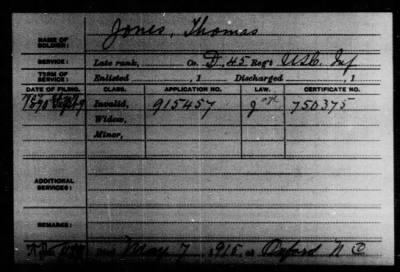 Jones, Thomas
NAME OF SOLDIER:
SERVICE: Late rank, Co. D, 45 Reg't U.S.C. Inf
TERM OF SERVICE: Enlisted , 1 Discharged , 1
DATE OF FILING. CLASS. APPLICATION NO. LAW. CERTIFICATE NO.
1890 Sept 9 Invalid, 915457 J 750375
Widow,
Minor,
ADDITIONAL SERVICES:
REMARKS:
Died May 7, 1915, at Oxford N C